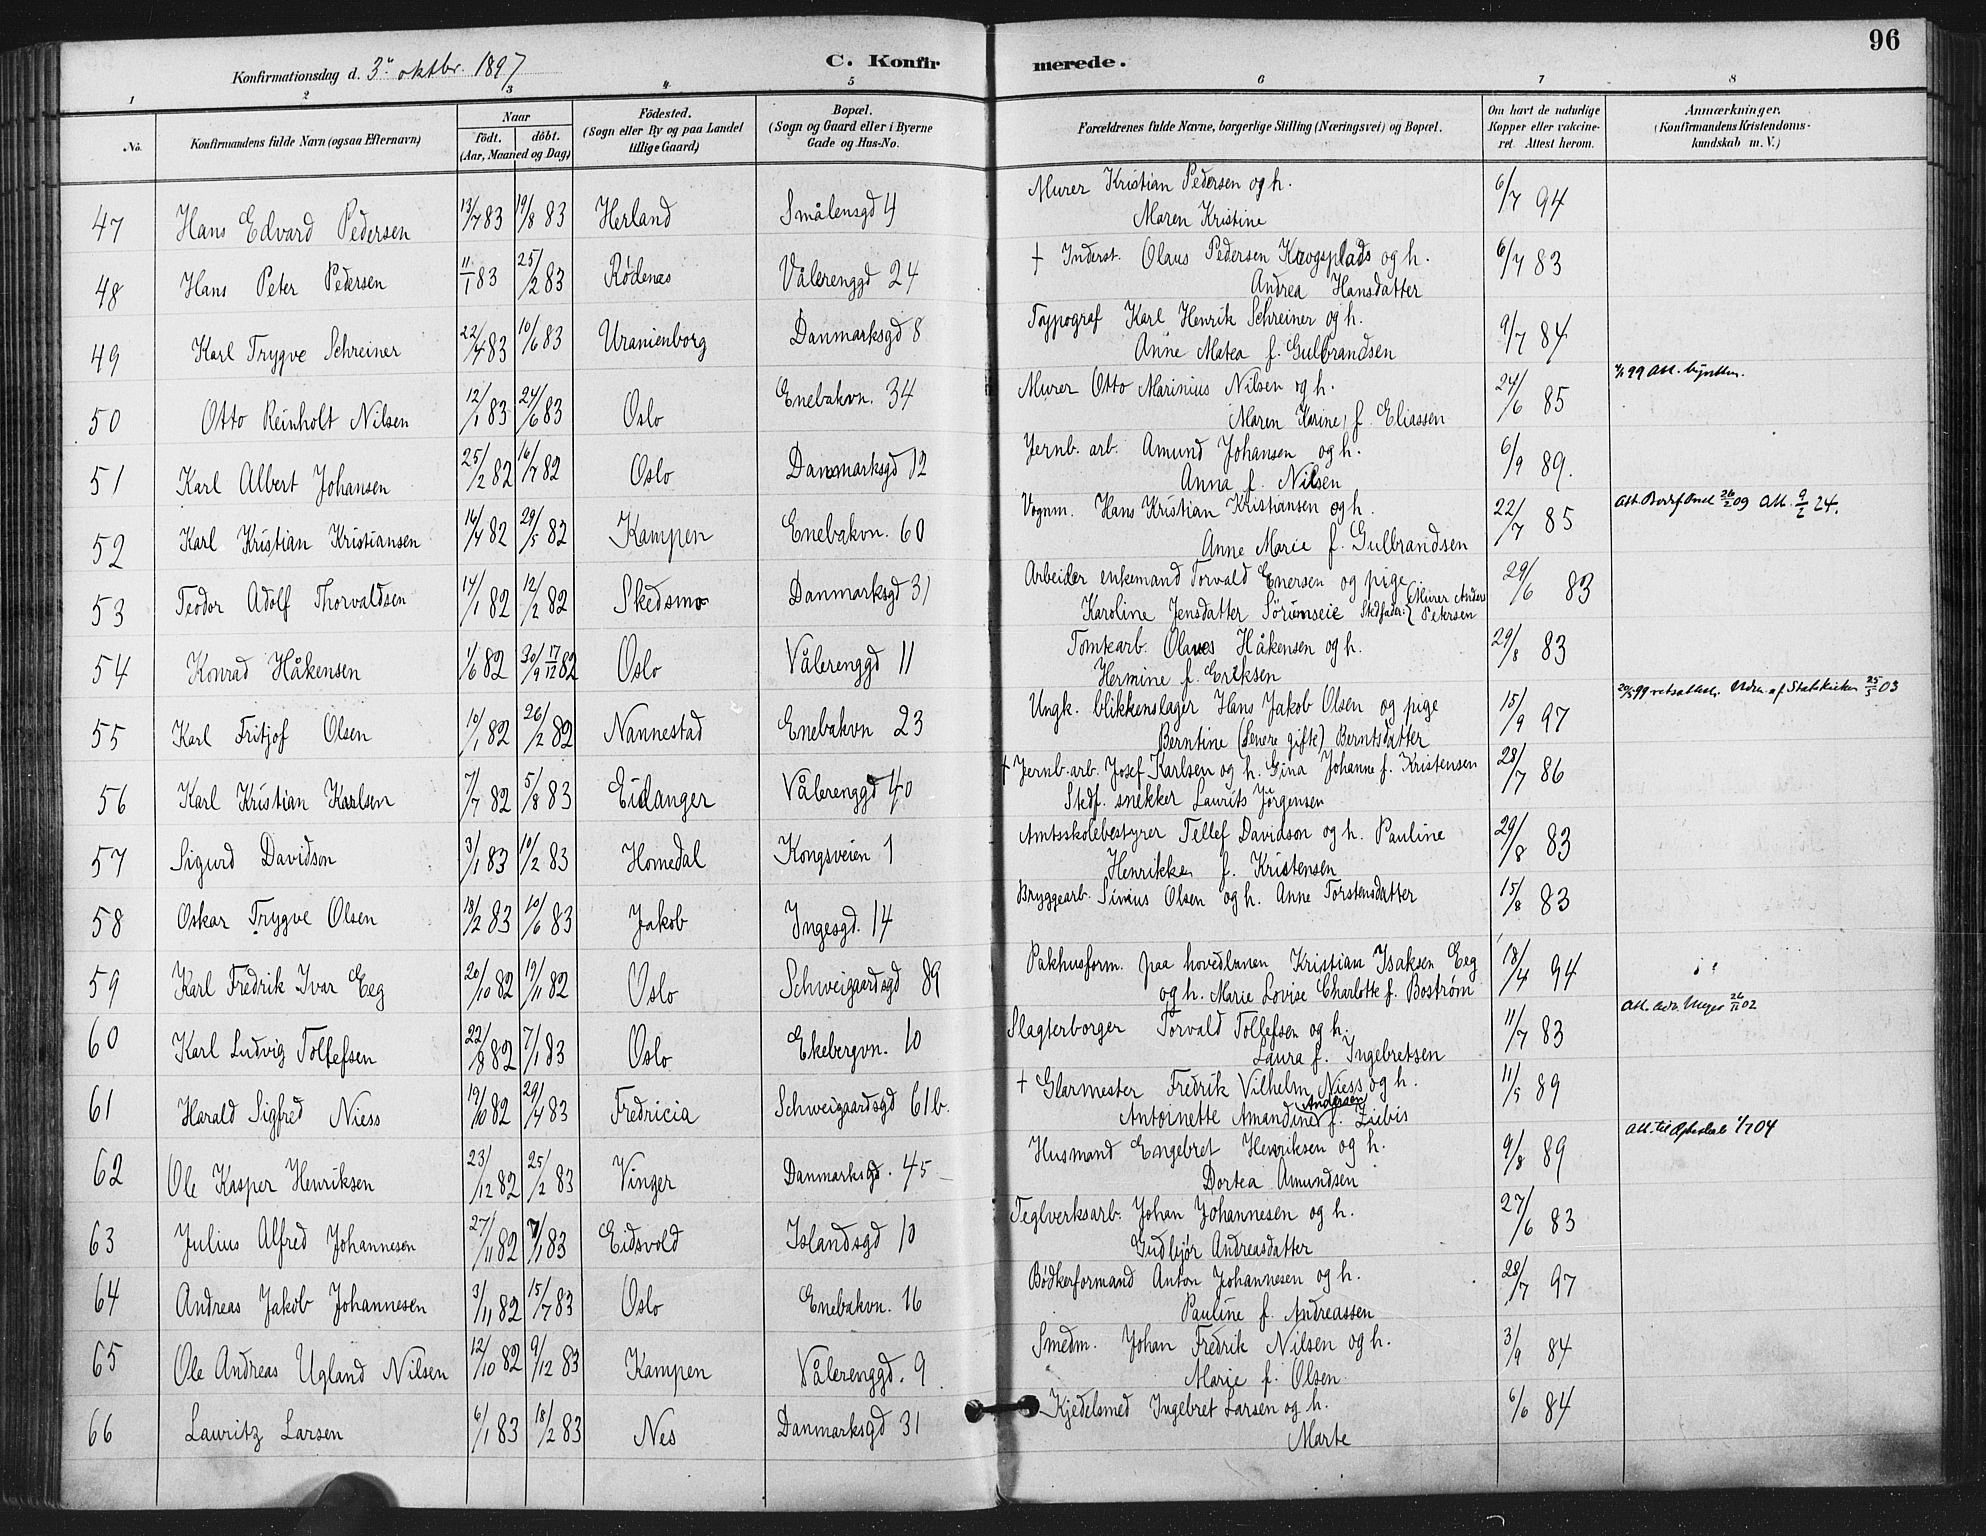 96
Konfirmationsdag d. 3die oktbr. 1897 C. Konfirmerede.
1 2 3 4 5 6 7 8
No. Konfirmandens fulde Navn (ogsaa Efternavn) Naar født. døbt. (Aar, Maaned og Dag) Fødested. (Sogn eller By og paa Landet tillige Gaard) Bopæl. (Sogn og Gaard eller i Byerne Gade og Hus-No. Forældrenes fulde Navne, borgerlige Stilling (Næringsvei) og Bopæl. Om havt de naturlige Kopper eller vakcineret. Attest herom. Anmærkninger. (Konfirmandens Kristendomskundskab m.V.)
47 Hans Edvard Pedersen 13/7 83 19/8 83 Herland Smålensgd 4 Murer Kristian Pedersen og h. 6/7 94
Maren Kristine
48 Hans Peter Pedersen 11/1 83 25/2 83 Rødenes Vålerenggd 24 † Inderst. Olaus Pedersen Krogsplads og h. 6/7 83
Andrea Hansdatter
49 Karl Trygve Schreiner 22/4 83 10/6 83 Uranienborg Danmarksgd 8 Typograf Karl Henrik Schreiner og h. 9/7 84
Anne Matea f. Gulbrandsen
50 Otto Reinholt Nilsen 12/1 83 24/6 83 Oslo Enebakvn. 34 Murer Otto Marinius Nilsen og h. 24/6 85 99 Att.
Maren Karine f. Eliassen
51 Karl Albert Johansen 25/2 82 16/7 82 Oslo Danmarksgd 12 Jernb. arb. Amund Johansen og h. 6/9 89.
Anna f. Nilsen
52 Karl Kristian Kristiansen 16/4 82 29/5 82 Kampen Enebakvn. 60 Vognm. Hans Kristian Kristiansen og h. 22/7 85 Att. 26/2 09 Att. 9/2 24.
Anne Marie f. Gulbrandsen
53 Teodor Adolf Thorvaldsen 14/1 82 12/2 82 Skedsmo Danmarksgd 31 Arbeider enkemand Torvald Enersen og pige 29/6 83
Karoline Jensdatter Sørumseie Stedfader: (Murer Anders Petersen
54 Konrad Håkensen 1/6 82 30/9 17/12 82 Oslo Vålerenggd 11 Tomtearb. Olaves Håkensen og h. 29/8 83
Hermine f. Eriksen
55 Karl Fritjof Olsen 10/1 82 26/2 82 Nannestad Enebakvn 23 Ungk. blikkenslager Hans Jakob Olsen og pige 15/9 97 99 Udm. af Statskirken 25/5 03
Berntine (senere gifte) Berntsdatter
56 Karl Kristian Karlsen 7/7 82 5/8 83 Eidanger Vålerenggd 40 † Jernb. arb. Josef Karlsen og h. Gina Johanne f. Kristensen 28/7 86
Stedf. snekker Laurits Jørgensen
57 Sigurd Davidson 3/1 83 10/2 83 Homedal Kongsveien 1 Amtsskolebestyrer Tellef Davidson og h. Pauline 29/8 83
Henrikke f. Kristensen
58 Oskar Trygve Olsen 18/2 83 10/6 83 Jakob Ingesgd. 14 Bryggearb. Sivius Olsen og h. Anne Torstensdatter 15/8 83
59 Karl Fredrik Ivar Eeg 20/10 82 19/11 82 Oslo Schweigaardsgd 89 Pakhusform. paa hovedbanen Kristian Isaksen Eeg 18/4 94
og h. Marie Lovise Charlotte f. Bostrøm
60 Karl Ludvig Tollefsen 22/8 82 7/1 83 Oslo Ekebergvn. 10 Slagterborger Torvald Tollefsen og h. 11/7 83 Att. 26/11 02
Laura f. Ingebretsen
61 Harald Sigfred Niess 19/10 82 29/4 83 Fredricia Schweigaardsgd 61b. † Glarmester Fredrik Vilhelm Niess og h. 11/5 89
Antoinette Amandine Andersen f. Zibis
62 Ole Kasper Henriksen 23/12 82 25/2 83 Vinger Danmarksgd. 45 Husmand Engebret Henriksen og h. 9/8 89 Att. til 1/7 04
Dortea Amundsen
63 Julius Alfred Johannesen 27/11 82 7/1 83 Eidsvold Islandsgd 10 Teglverksarb. Johan Johannesen og h. 27/6 83
Gudbjør Andreasdatter
64 Andreas Jakob Johannesen 3/11 82 15/7 83 Oslo Enebakvn. 16 Bødkerformand Anton Johannesen og h. 28/7 97
Pauline f. Andreassen
65 Ole Andreas Ugland Nilsen 12/10 82 9/12 83 Kampen Vålerenggd. 9 Smedm. Johan Fredrik Nilsen og h. 3/9 84
Marie f. Olsen
66 Lauritz Larsen 6/1 83 18/2 83 Nes Danmarksgd 31 Kjedelsmed Ingebret Larsen og h. 6/6 84
Marte